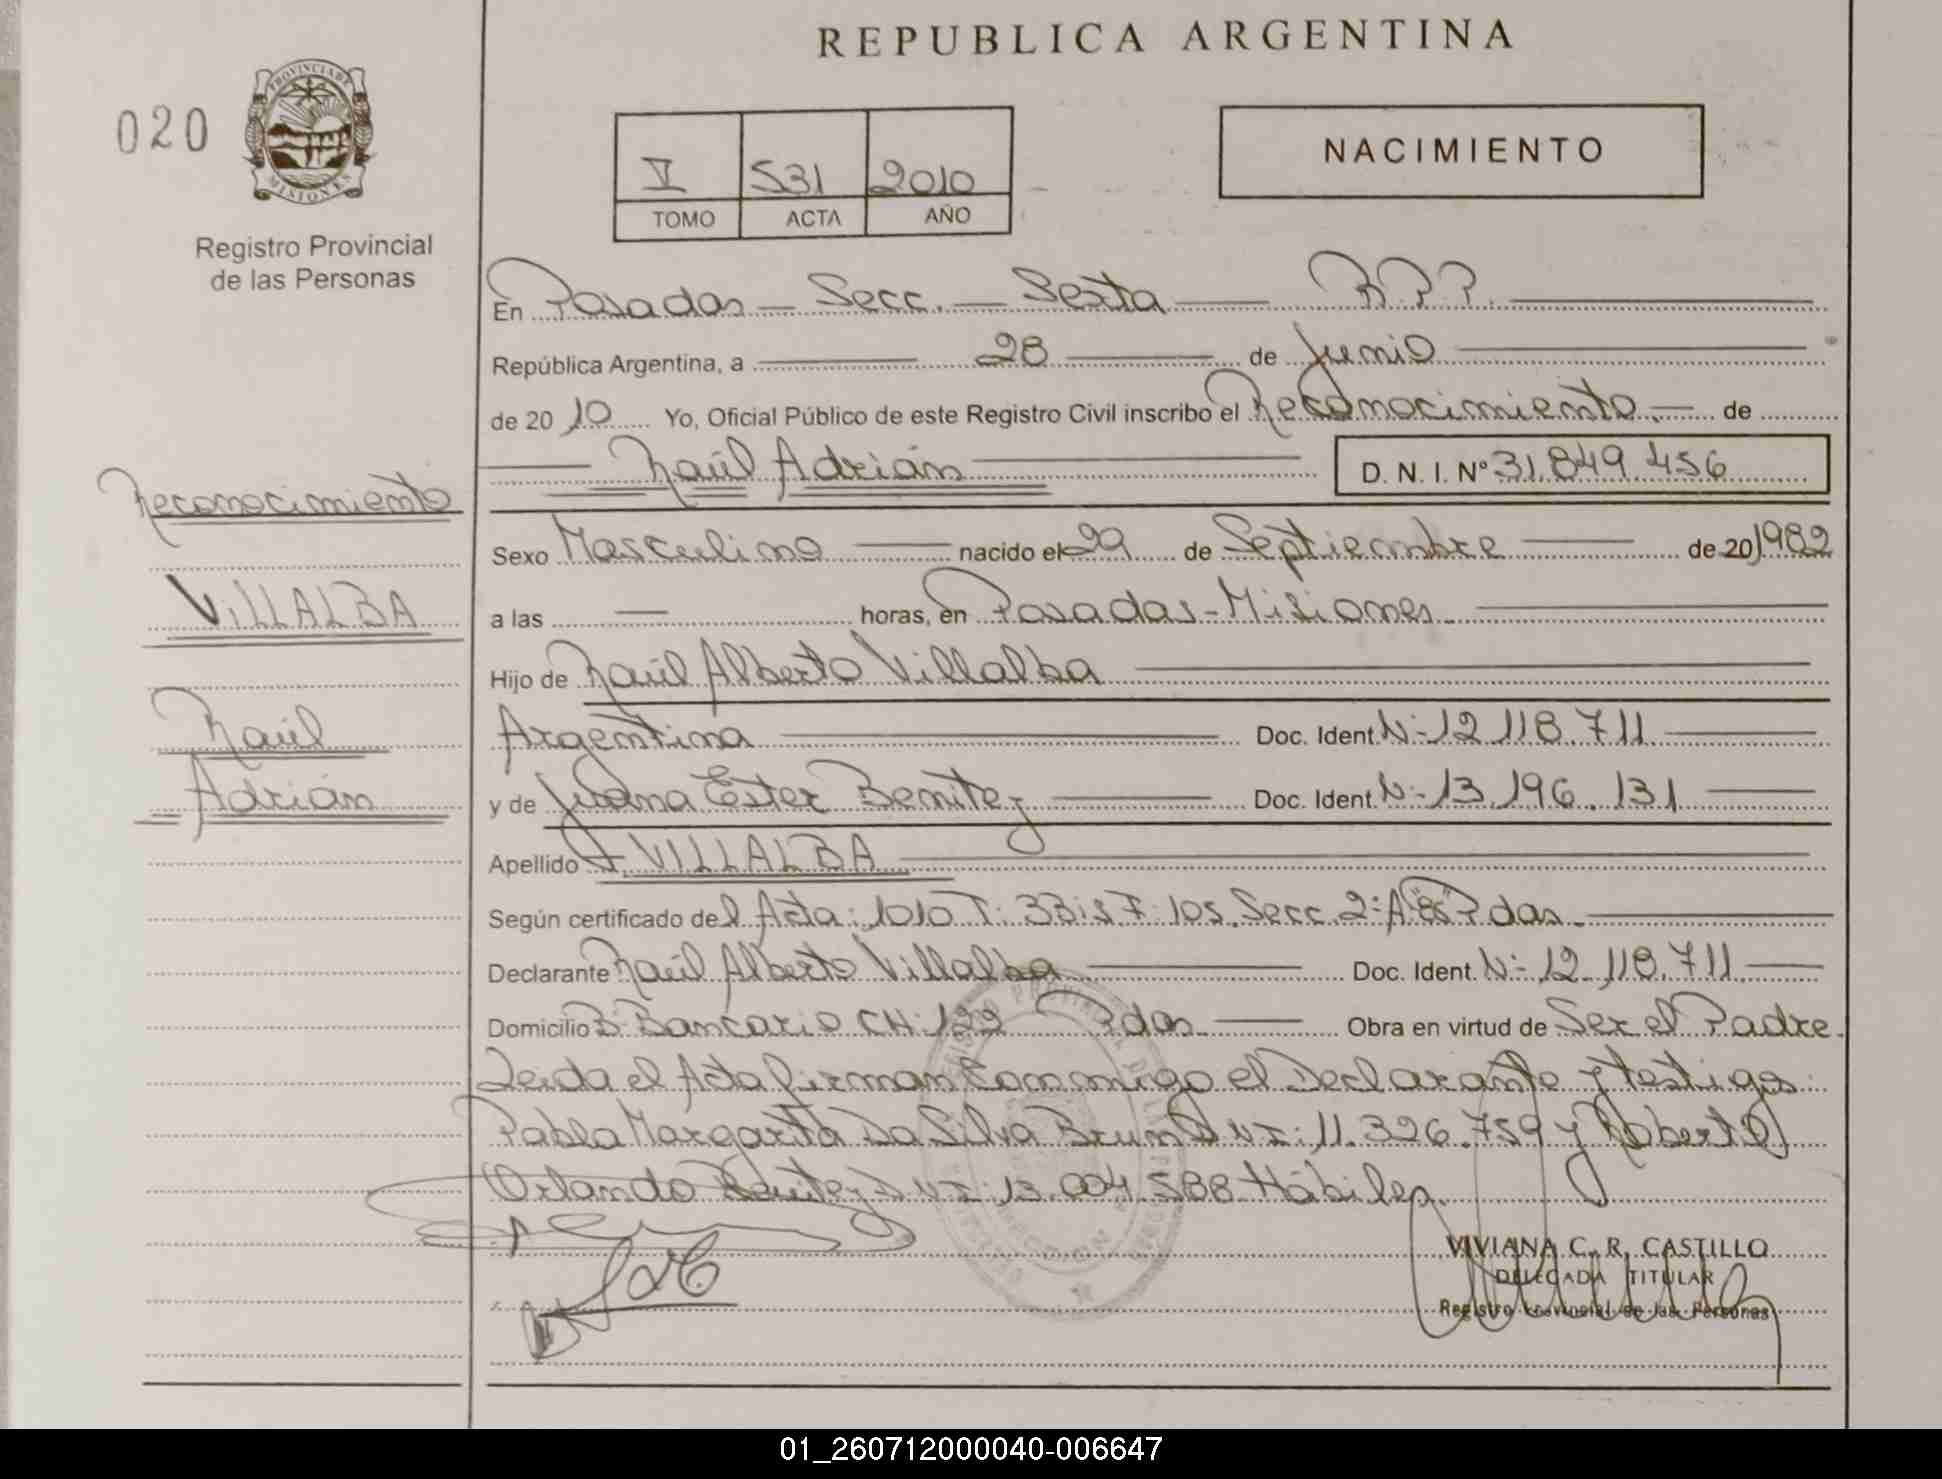 REPUBLICA ARGENTINA
020
PROVINCIA DE MISIONES
Registro Provincial
de las Personas
V 531 2010
TOMO ACTA AÑO
NACIMIENTO
En Posadas — Secc. — Sexta — R.P.P.
República Argentina, a 28 de Junio
de 2010 Yo, Oficial Público de este Registro Civil inscribo el Reconocimiento — de
Raúl Adrián D. N. I. Nº 31.849.456
Sexo Masculino nacido el 29 de Septiembre de 20 1982
a las — horas, en Posadas - Misiones
Hijo de Raúl Alberto Villalba
Argentina Doc. Ident. Nº 12.118.711
y de Juana Ester Benitez Doc. Ident. Nº 13.196.131
Apellido VILLALBA
Según certificado del Acta: 1010 T: 3Bis F: 105. Secc. 2ª Pdas.
Declarante Raúl Alberto Villalba Doc. Ident. Nº 12.118.711
Domicilio Bº Bancario CH: 122 Pdas Obra en virtud de Ser el Padre.
Leida el Acta firman Conmigo el Declarante y testigos
Pabla Margarita Da Silva Brum D N I: 11.326.759 y Roberto
Orlando Benitez D N I: 13.004.588 Hábiles.
Reconocimiento
VILLALBA
Raúl
Adrián
VIVIANA C. R. CASTILLO
DELEGADA TITULAR
Registro Provincial de las Personas
01_260712000040-006647